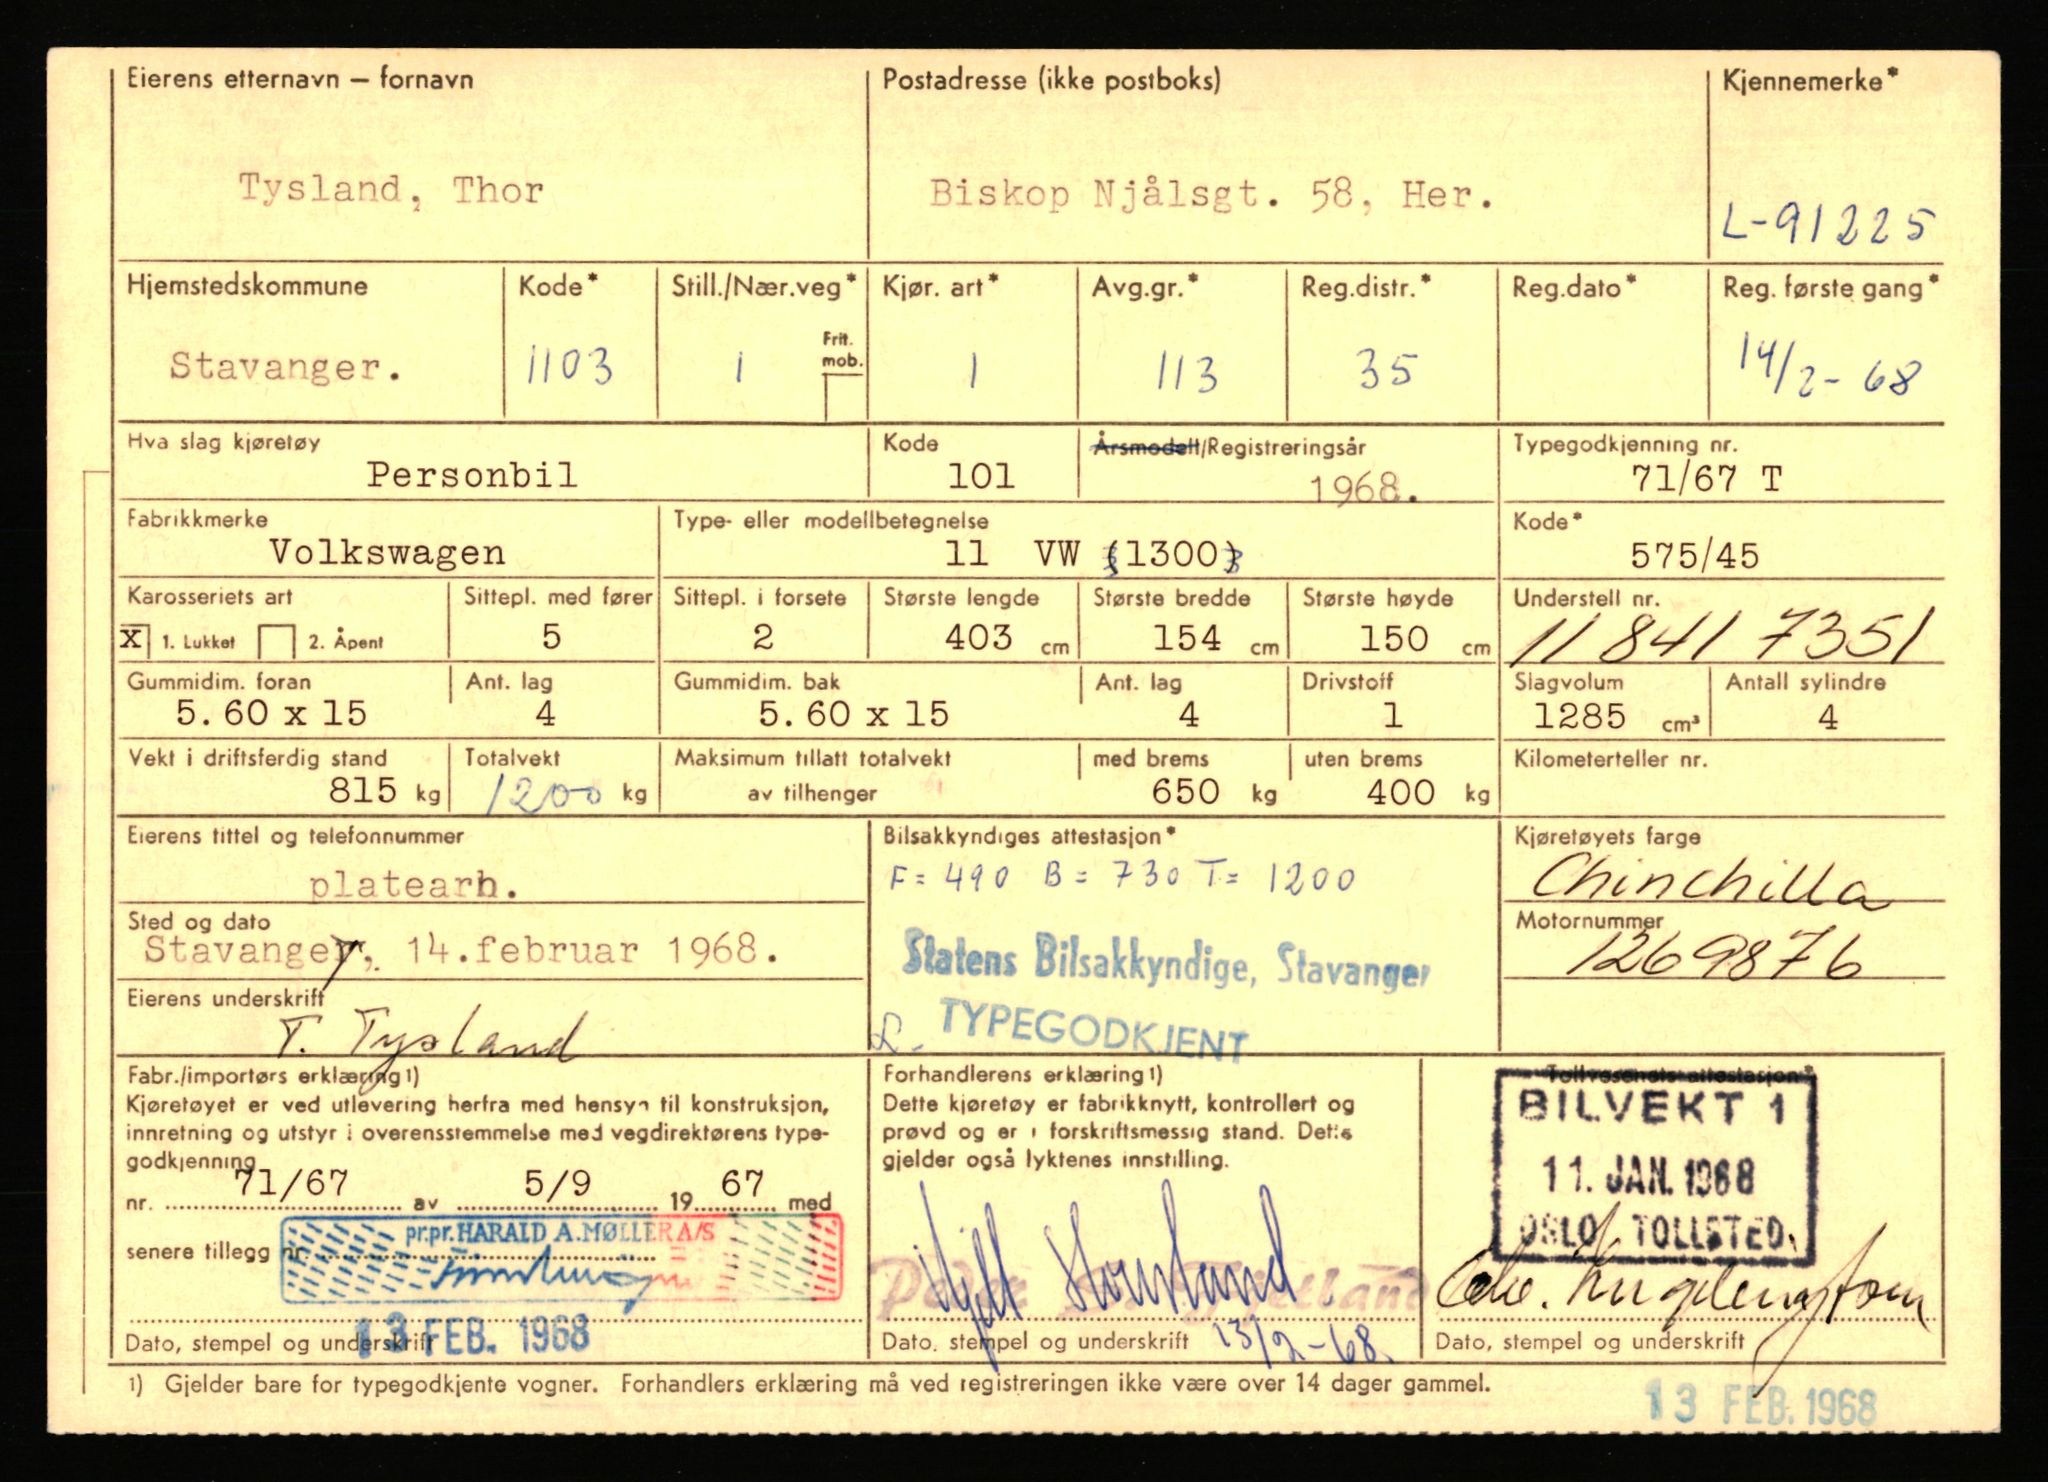 Eierens etternavn — fornavn Postadresse (ikke postboks) Kjennemerke*
Tysland, Thor Biskop Njålsgt. 58, Her. L-91225
Hjemstedskommune Kode* Still./Nær.veg* Kjør. art* Avg.gr.* Reg.distr.* Reg.dato* Reg. første gang*
Frit. mob.
Stavanger. 1103 1 1 113 35 14/2-68
Hva slag kjøretøy Kode Årsmodell/Registreringsår Typegodkjenning nr.
Personbil 101 1968. 71/67 T
Fabrikkmerke Type- eller modellbetegnelse Kode*
Volkswagen 11 VW (1300) 575/45
Karosseriets art Sittepl. med fører Sittepl. i forsete Største lengde Største bredde Største høyde Understell nr.
X 1. Lukket 2. Åpent 5 2 403 cm 154 cm 150 cm 11 841 7351
Gummidim. foran Ant. lag Gummidim. bak Ant. lag Drivstoff Slagvolum Antall sylindre
5.60 x 15 4 5.60 x 15 4 1 1285 cm³ 4
Vekt i driftsferdig stand Totalvekt Maksimum tillatt totalvekt med brems uten brems Kilometerteller nr.
815 kg 1200 kg av tilhenger 650 kg 400 kg
Eierens tittel og telefonnummer Bilsakkyndiges attestasjon* Kjøretøyets farge
platearb. F = 490 B = 730 T = 1200 Chinchilla
Sted og dato Motornummer
Stavanger, 14.februar 1968. Statens Bilsakkyndige, Stavanger 1269876
Eierens underskrift TYPEGODKJENT
T. Tysland
Fabr./importørs erklæring 1) Forhandlerens erklæring 1) Tollvesenets attestasjon*
Kjøretøyet er ved utlevering herfra med hensyn til konstruksjon, Dette kjøretøy er fabrikknytt, kontrollert og BILVEKT 1
innretning og utstyr i overensstemmelse med vegdirektørens type- prøvd og er i forskriftsmessig stand. Dette
godkjenning gjelder også lyktenes innstilling. 11. JAN. 1968
nr. 71/67 av 5/9 19 67 med
senere tillegg nr. pr.pr. HARALD A. MØLLER A/S OSLO TOLLSTED
Dato, stempel og underskrift 13 FEB. 1968 Dato, stempel og underskrift 13/2-68. Dato, stempel og underskrift
1) Gjelder bare for typegodkjente vogner. Forhandlers erklæring må ved registreringen ikke være over 14 dager gammel.
13 FEB. 1968